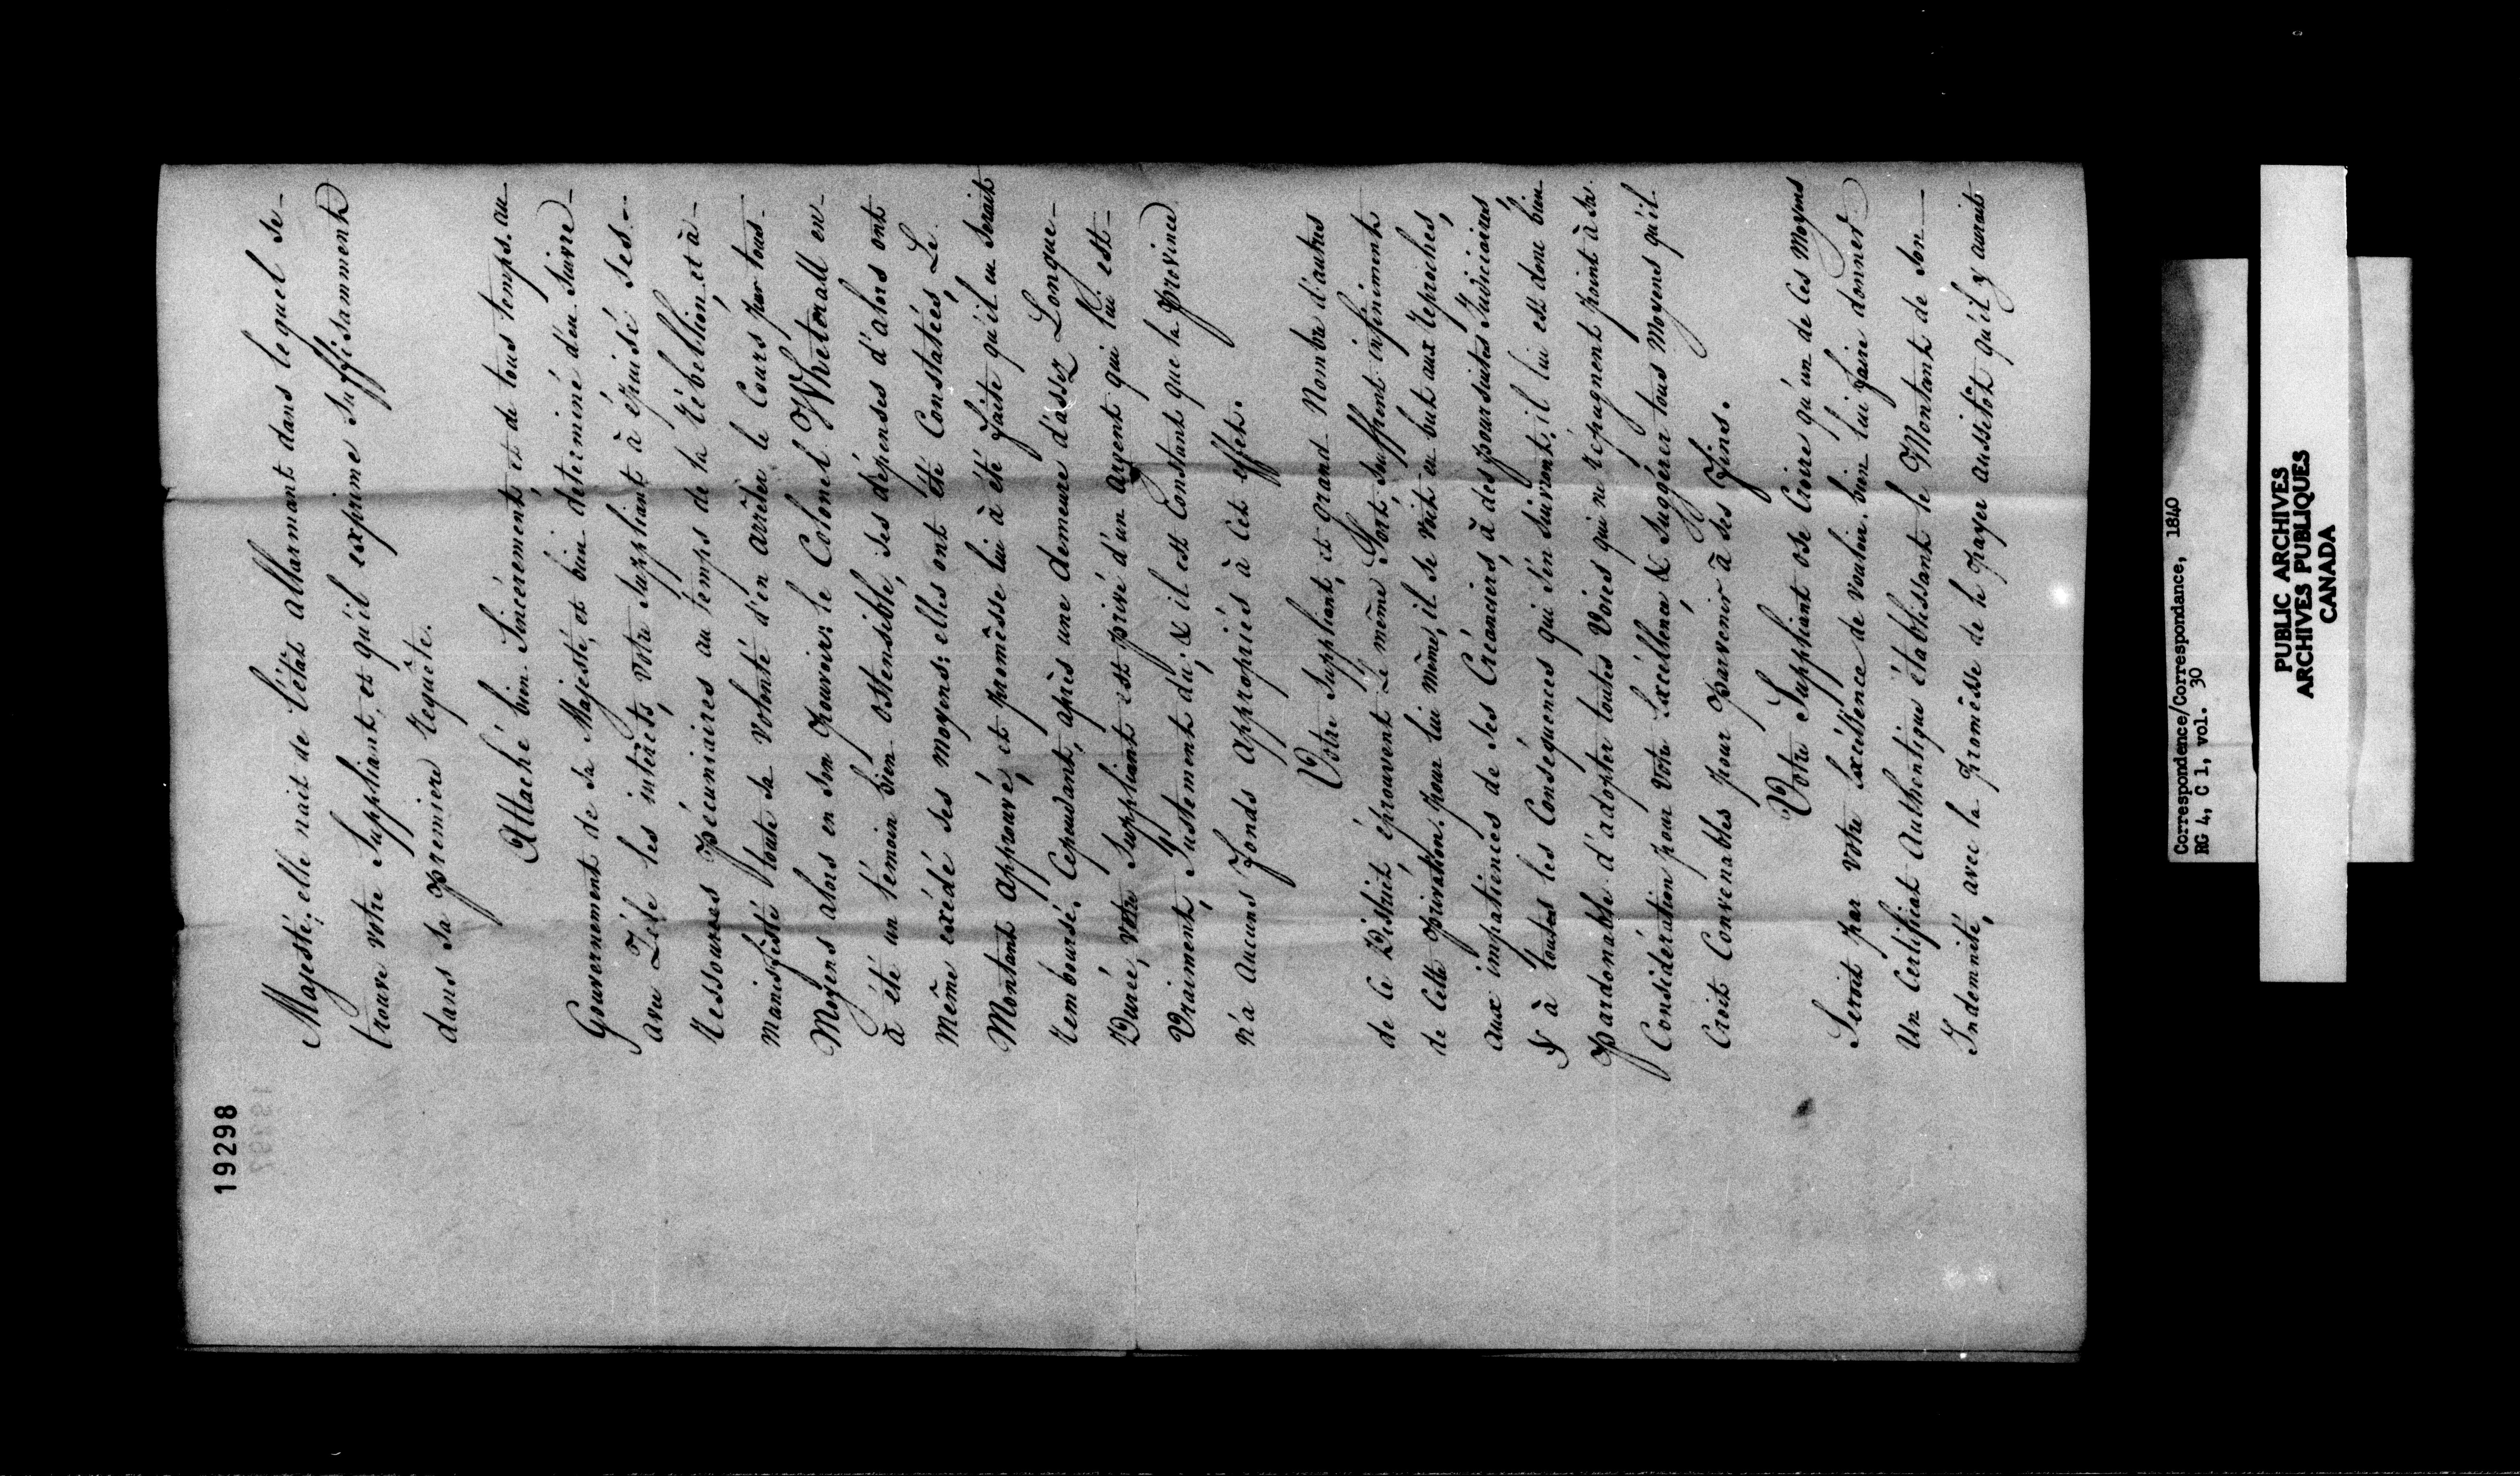 19298
Majesté; elle nait de l'état allarmant dans lequel se-
trouve votre Suppliant, et qu'il exprime suffisamment
dans sa premiere requête.
Attaché bien Sincèrement, et de tous temps, au
Gouvernement de sa Majesté, et bien determiné d'en suivre
avec Zèle les intérêts, votre Suppliant à épuisé ses
ressources Pécuniaires au temps de la rébellion, et à
manifesté toute sa volonté d'en arrêter le Cours par tous
Moyens alors en son pouvoir: le Colonel Whetorall en
à été un témoin bien ostensible, ses dépenses d'alors ont
même excédé ses moyens: elles ont été Constatées, Le
Montant approuvé, et promêsse lui à été faite qu'il en serait
remboursé. Cependant, après une demeure d'assez Longue
Durée, votre Suppliant est privé d'un argent qui lui est
Vraiment, Justement dû; & il est Constant que la province
n'a aucuns fonds appropriés à Cet effet.
Votre Suppliant, et grand Nombre d'autres
de Ce District éprouvent Le même Sort, souffrent infiniment
de Cette privation. pour Lui même, il se voit en but aux reproches,
aux impatiences de ses Créanciers, à des poursuites Judiciaires
& à toutes les Conséquences qui s'en suivent; il lui est donc bien
Pardonable d'adopter toutes Voies qui ne répugnent point à sa
Considération pour votre Excellence & Sugérer tous Moyens qu'il
Croit Convenables pour parvenir à ses fins.
Votre Suppliant ose Croire qu'un de Ces Moyens
Seroit par votre Excellence de vouloir bien lui faire donner
Un Certificat Authentique établissant le Montant de Son
Indemnité, avec la promêsse de le payer aussitôt qu'il y auroit
Correspondence/Correspondance, 1840
RG 4, C 1, vol. 30
PUBLIC ARCHIVES
ARCHIVES PUBLIQUES
CANADA